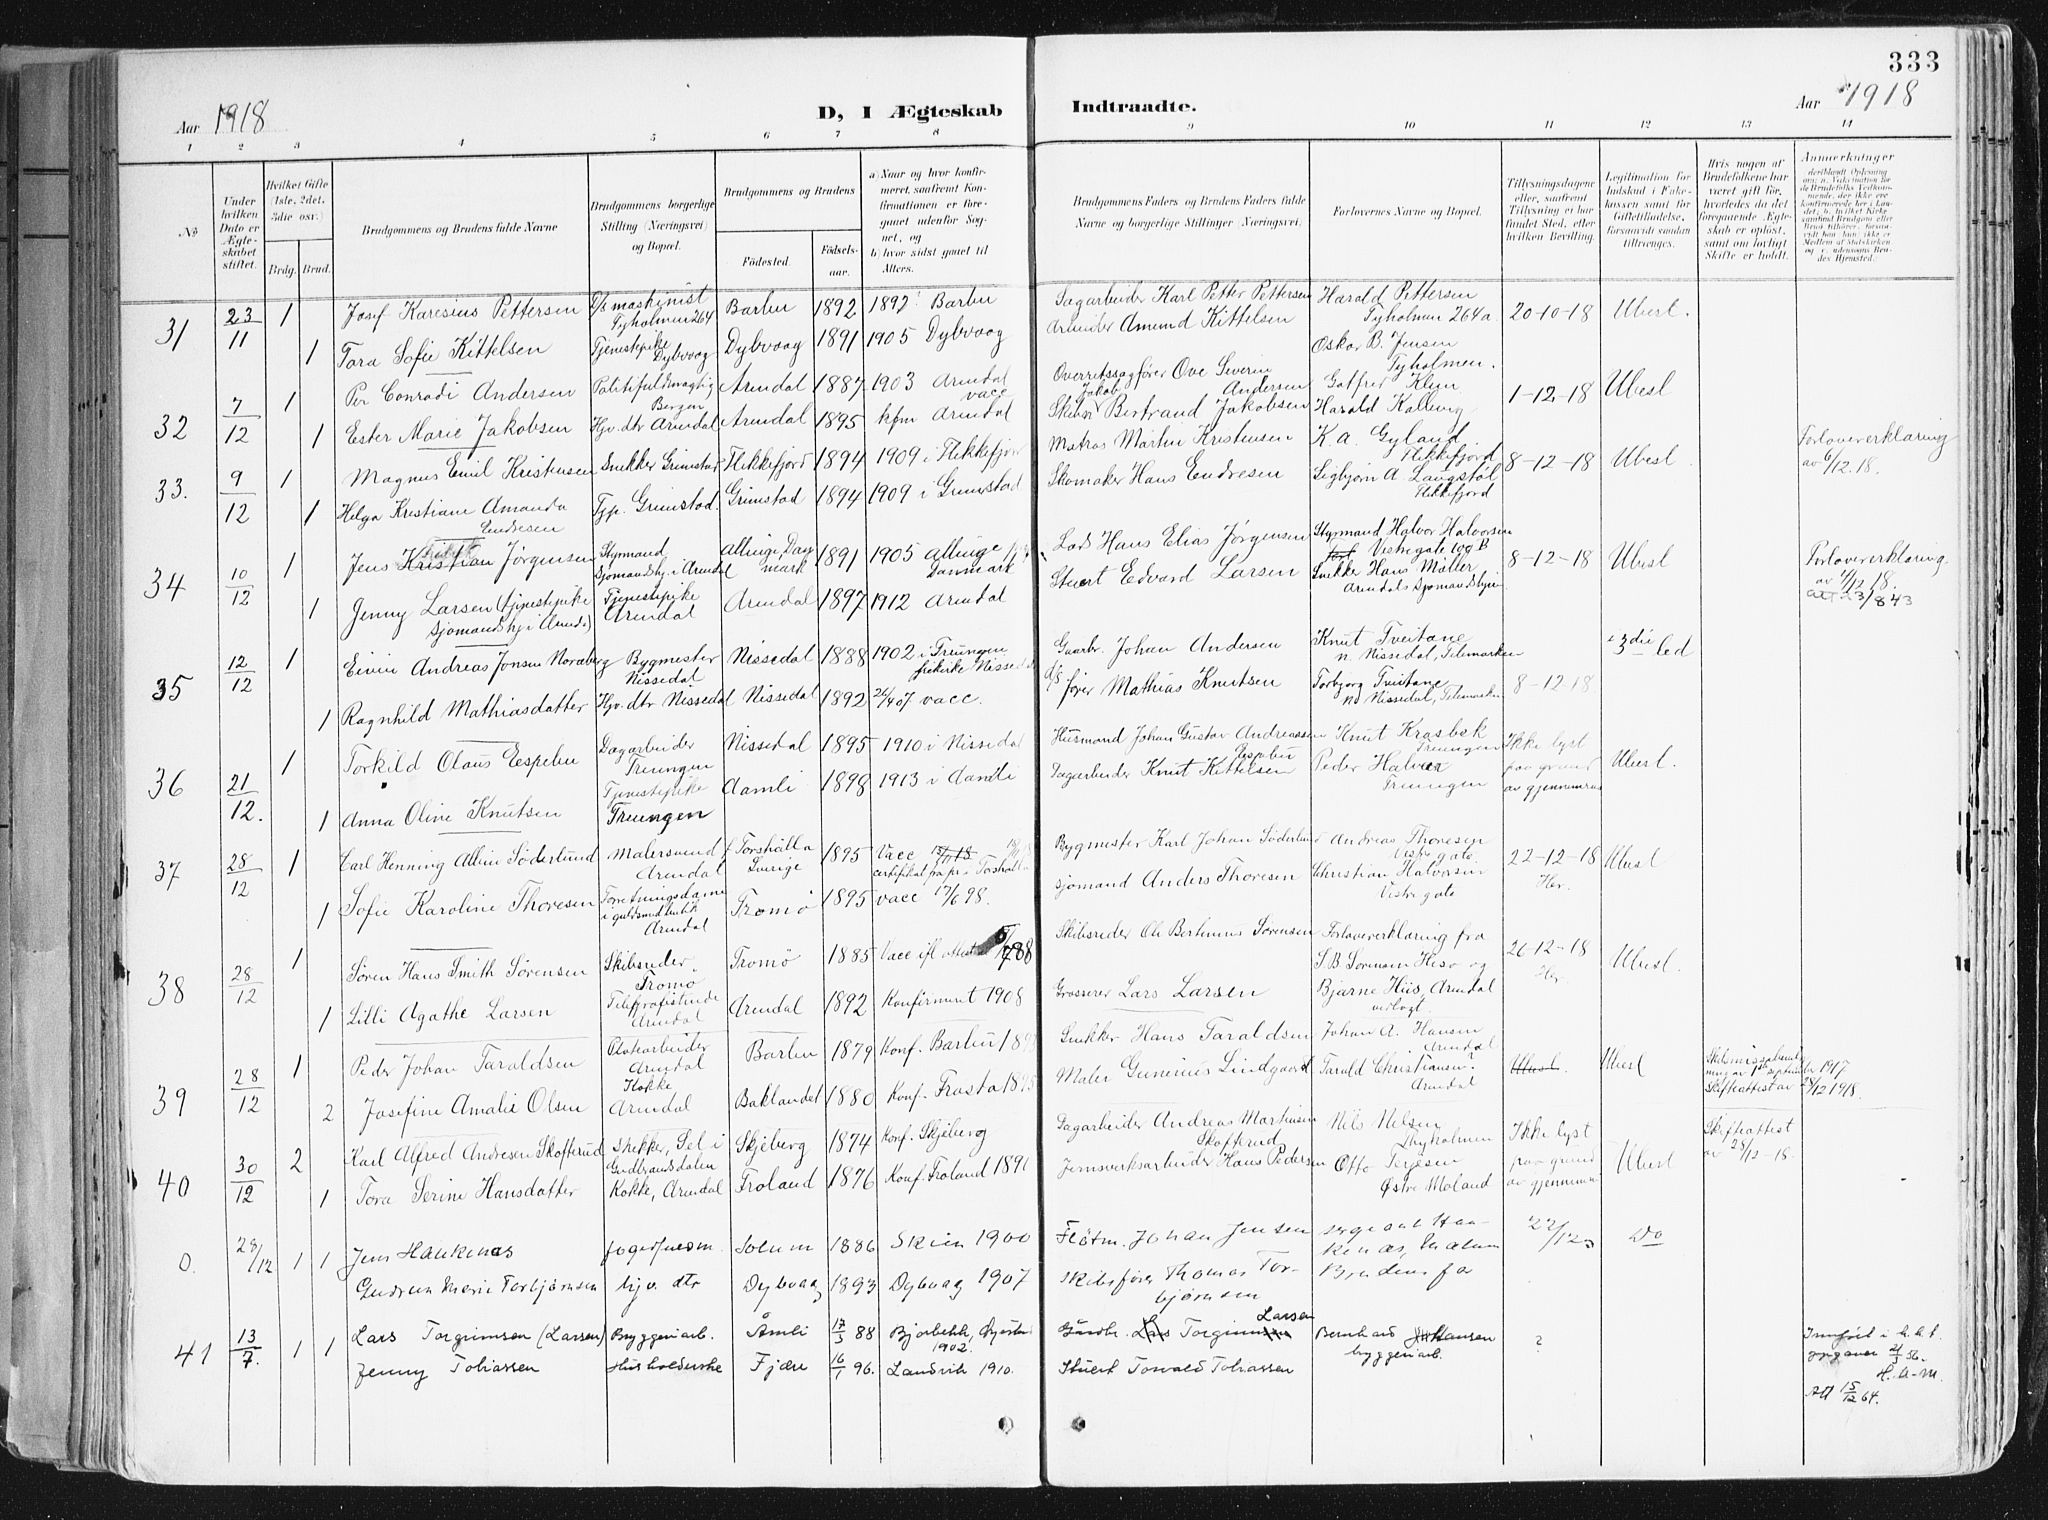 333
Aar 1918
D, I Ægteskab Indtraadte.
Aar 1918
1 2 3 4 5 6 7 8 9 10 11 12 13 14
No
Under hvilken Dato er Ægteskabet stiftet.
Hvilket Gifte (1ste, 2det, 3die osv.)
Brdg. Brud.
Brudgommens og Brudens fulde Navne
Brudgommens borgerlige Stilling (Næringsvei) og Bopæl.
Brudgommens og Brudens
Fødested. Fødselsaar.
a) Naar og hvor konfirmeret, saafremt Konfirmationen er foregaaet udenfor Sognet, og
b) hvor sidst gaaet til Alters.
Brudgommens Faders og Brudens Faders fulde Navne og borgerlige Stillinger (Næringsvei.
Forlovernes Navne og Bopæl.
Tillysningsdagene eller, saafremt Tillysning ei har fundet Sted, efter hvilken Bevilling.
Legitimation for Indskud i Enkekassen samt for Giftetilladelse, forsaavidt saadan tiltrænges.
Hvis nogen af Brudefolkene har været gift før, hvorledes da det foregaaende Ægteskab er opløst, samt om lovligt Skifte er holdt.
Anmerkninger
31 23/11 1 Josef Karesius Pettersen D/s maskinist Tyholmen 264 Barbu 1892 1892 Barbu Dagarbeider Karl Petter Pettersen Harald Pettersen Tyholmen 264a 20-10-18 Ubesl.
1 Tora Sofie Kittelsen Tjenestepike Dybvaag Dybvaag 1891 1905 Dybvaag Arbeider Amund Kittelsen Oskar B. Jensen Tyholmen.
32 7/12 1 Per Conradi Andersen Politifuldmægtig Bergen Arendal 1887 1903 Arendal vacc Overretssagfører Ove Severin Andersen Gotfred Klem 1-12-18 Ubesl
1 Ester Marie Jakobsen Hjv. dtr Arendal Arendal 1895 kfm Arendal Jakob Bertrand Jakobsen Harald Kallevig
33. 9/12 1 Magnus Emil Kristensen Snekker Grimstad Flekkefjord 1894 1909 i Flekkefjord Matros Martin Kristensen K. A. Gyland Flekkefjord 8-12-18 Ubesl Forlovererklæring av 6/12.18.
1 Helga Kristiane Amanda Endresen Tjp. Grimstad. Grimstad 1894 1909 i Grimstad Skomaker Hans Endresen Sigbjørn A Langstøl Flekkefjord
34 10/12 1 Jens Kristian Jørgensen Styrmand Sjømandshj. i Arendal Allinge, Danmark 1891 1905 Allinge Danmark Lods Hans Elias Jørgensen Styrmand Halvor Halvorsen Vestregate 10 B 8-12-18 Ubesl Forlovererklæring av 7/12 18.
1 Jenny Larsen (tjenestepike Sjømandshj i Arendal) Tjenestepike Arendal Arendal 1897 1912 Arendal Stuert Edvard Larsen Snekker Hans Møller Arendals Sjømandshjem
35 12/12 1 Eivin Andreas Jonsen Bygmester Nissedal Nissedal 1888 1902 i Treungen frikirke Nissedal Gaardbr. Johan Andersen Knut Tveitane n. Nissedal, Telemarken 8-12-18 i 3die led
1 Ragnhild Mathiasdatter Hjv. dtr Nissedal Nissedal 1892 26/4 07 vacc. D/s fører Mathias Knutsen Torbjørg Tveitane nd Nissedal, Telemarken
36 21/12. 1 Torkild Olaus Espebu Dagarbeider Treungen Nissedal 1895 1910 i Nissedal Husmand Johan Gustav Andreassen Espebu Knut Krosbøk Treungen Ikke lyst paa grund av gjennemreise Ubesl.
1 Anna Oline Knutsen Tjenestepike Treungen Aamli 1898 1913 i Aamli Dagarbeider Knut Kittelsen Peder Halvor Treungen
37 28/12 1 Carl Henning Albin Söderlund Malersvend Arendal Torshälla Sverige 1895 Vacc Bygmester Karl Johan Söderlund Andreas Thoresen Vestregate. 22-12-18 Her. Ubesl
1 Sofie Karoline Thoresen Forretningsdame i guldsmedbutik Arendal Tromø 1895 vacc 17/6 98. Sjømand Anders Thoresen Christian Halvorsen Vestregate
38 28/12 1 Søren Hans Smith Sørensen Skibsreder Tromø Tromø 1885 Vacc ifl. attest 88 Skibsreder Ole Bertinius Sørensen Forlovererklæring fra S.B. Sørensen Hisø og 26-12-18 Her Ubesl.
1 Lilli Agathe Larsen Telegrafistinde Arendal Arendal 1892 Konfirmert 1908 Grosserer Lars Larsen Bjarne Hiis, Arendal vedlagt.
39 28/12 1 Peder Johan Taraldsen Platearbeider Arendal Barbu 1879 Konf. Barbu Snekker Hans Taraldsen Johan A. Hansen Arendal Ubesl Skilsmissebevilling av 1ste september 1917 Skifteattest av 28/12 1918.
2 Josefine Amalie Olsen Kokke Arendal Baklandet 1880 Konf. Frosta 1895 Maler Gunerius Lindgaard Tarald Christiansen Arendal
40 30/12 2 Karl Alfred Andresen Skofterud Snekker, Sel i Gudbrandsdalen Skjeberg 1874 Konf. Skjeberg Dagarbeider Andreas Martinsen Skofterud Nils Nilsen Thyholmen Ikke lyst paa grund av gjennemr. Ubesl Skifteattest av 28/12-18.
1 Tora Serine Hansdatter Kokke, Arendal Froland 1876 Konf. Froland 1891 Jernverksarbeider Hans Pedersen Otto Terjesen Østre Moland
0. 28/12 1 1 Jens Haukenæs Solum 1886 Skien 1900 Fløtm. Johan Jensen sergeant Haukenæs 22/12 Do
Gudrun Marie Torbjørnsen hjv. dtr Dybvaag 1893 Dybvaag 1907 Skibsfører Thomas Torbjørnsen Brudens far
41 13/7. 1 1 Lars Torgrimsen (Larsen) Byggeriarb. Åmli 17/5 88 1902 Gaardbr. Torgrimsen Larsen Bernhard Hansen byggeriarb. ? Innført i h.h.t.
Jenny Tobiassen Husholderske Fjære 16/1 96. Landvik 1910. Stuert Torvald Tobiassen H. A-M. Att 15/12 64.